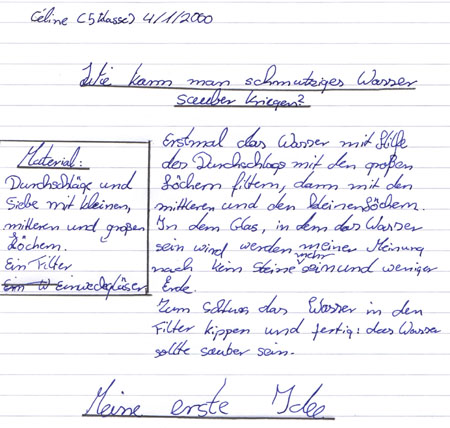 Céline (5 Klasse) 4/1/2000
Wie kann man schmutziges Wasser
sauber kriegen?
Material:
Durchschläge und
Siebe mit kleinen,
mittleren und großen
Löchern.
Ein Filter
Einweckgläser
Erstmal das Wasser mit Hilfe
des Durchschlags mit den großen
Löchern filtern, dann mit den
mittleren und den kleinen Löchern.
In dem Glas, in dem das Wasser
sein wird werden meiner Meinung
nach kein Steine mehr sein und weniger
Erde.
Zum Schluss das Wasser in den
Filter kippen und fertig: das Wasser
sollte sauber sein.
Meine erste Idee